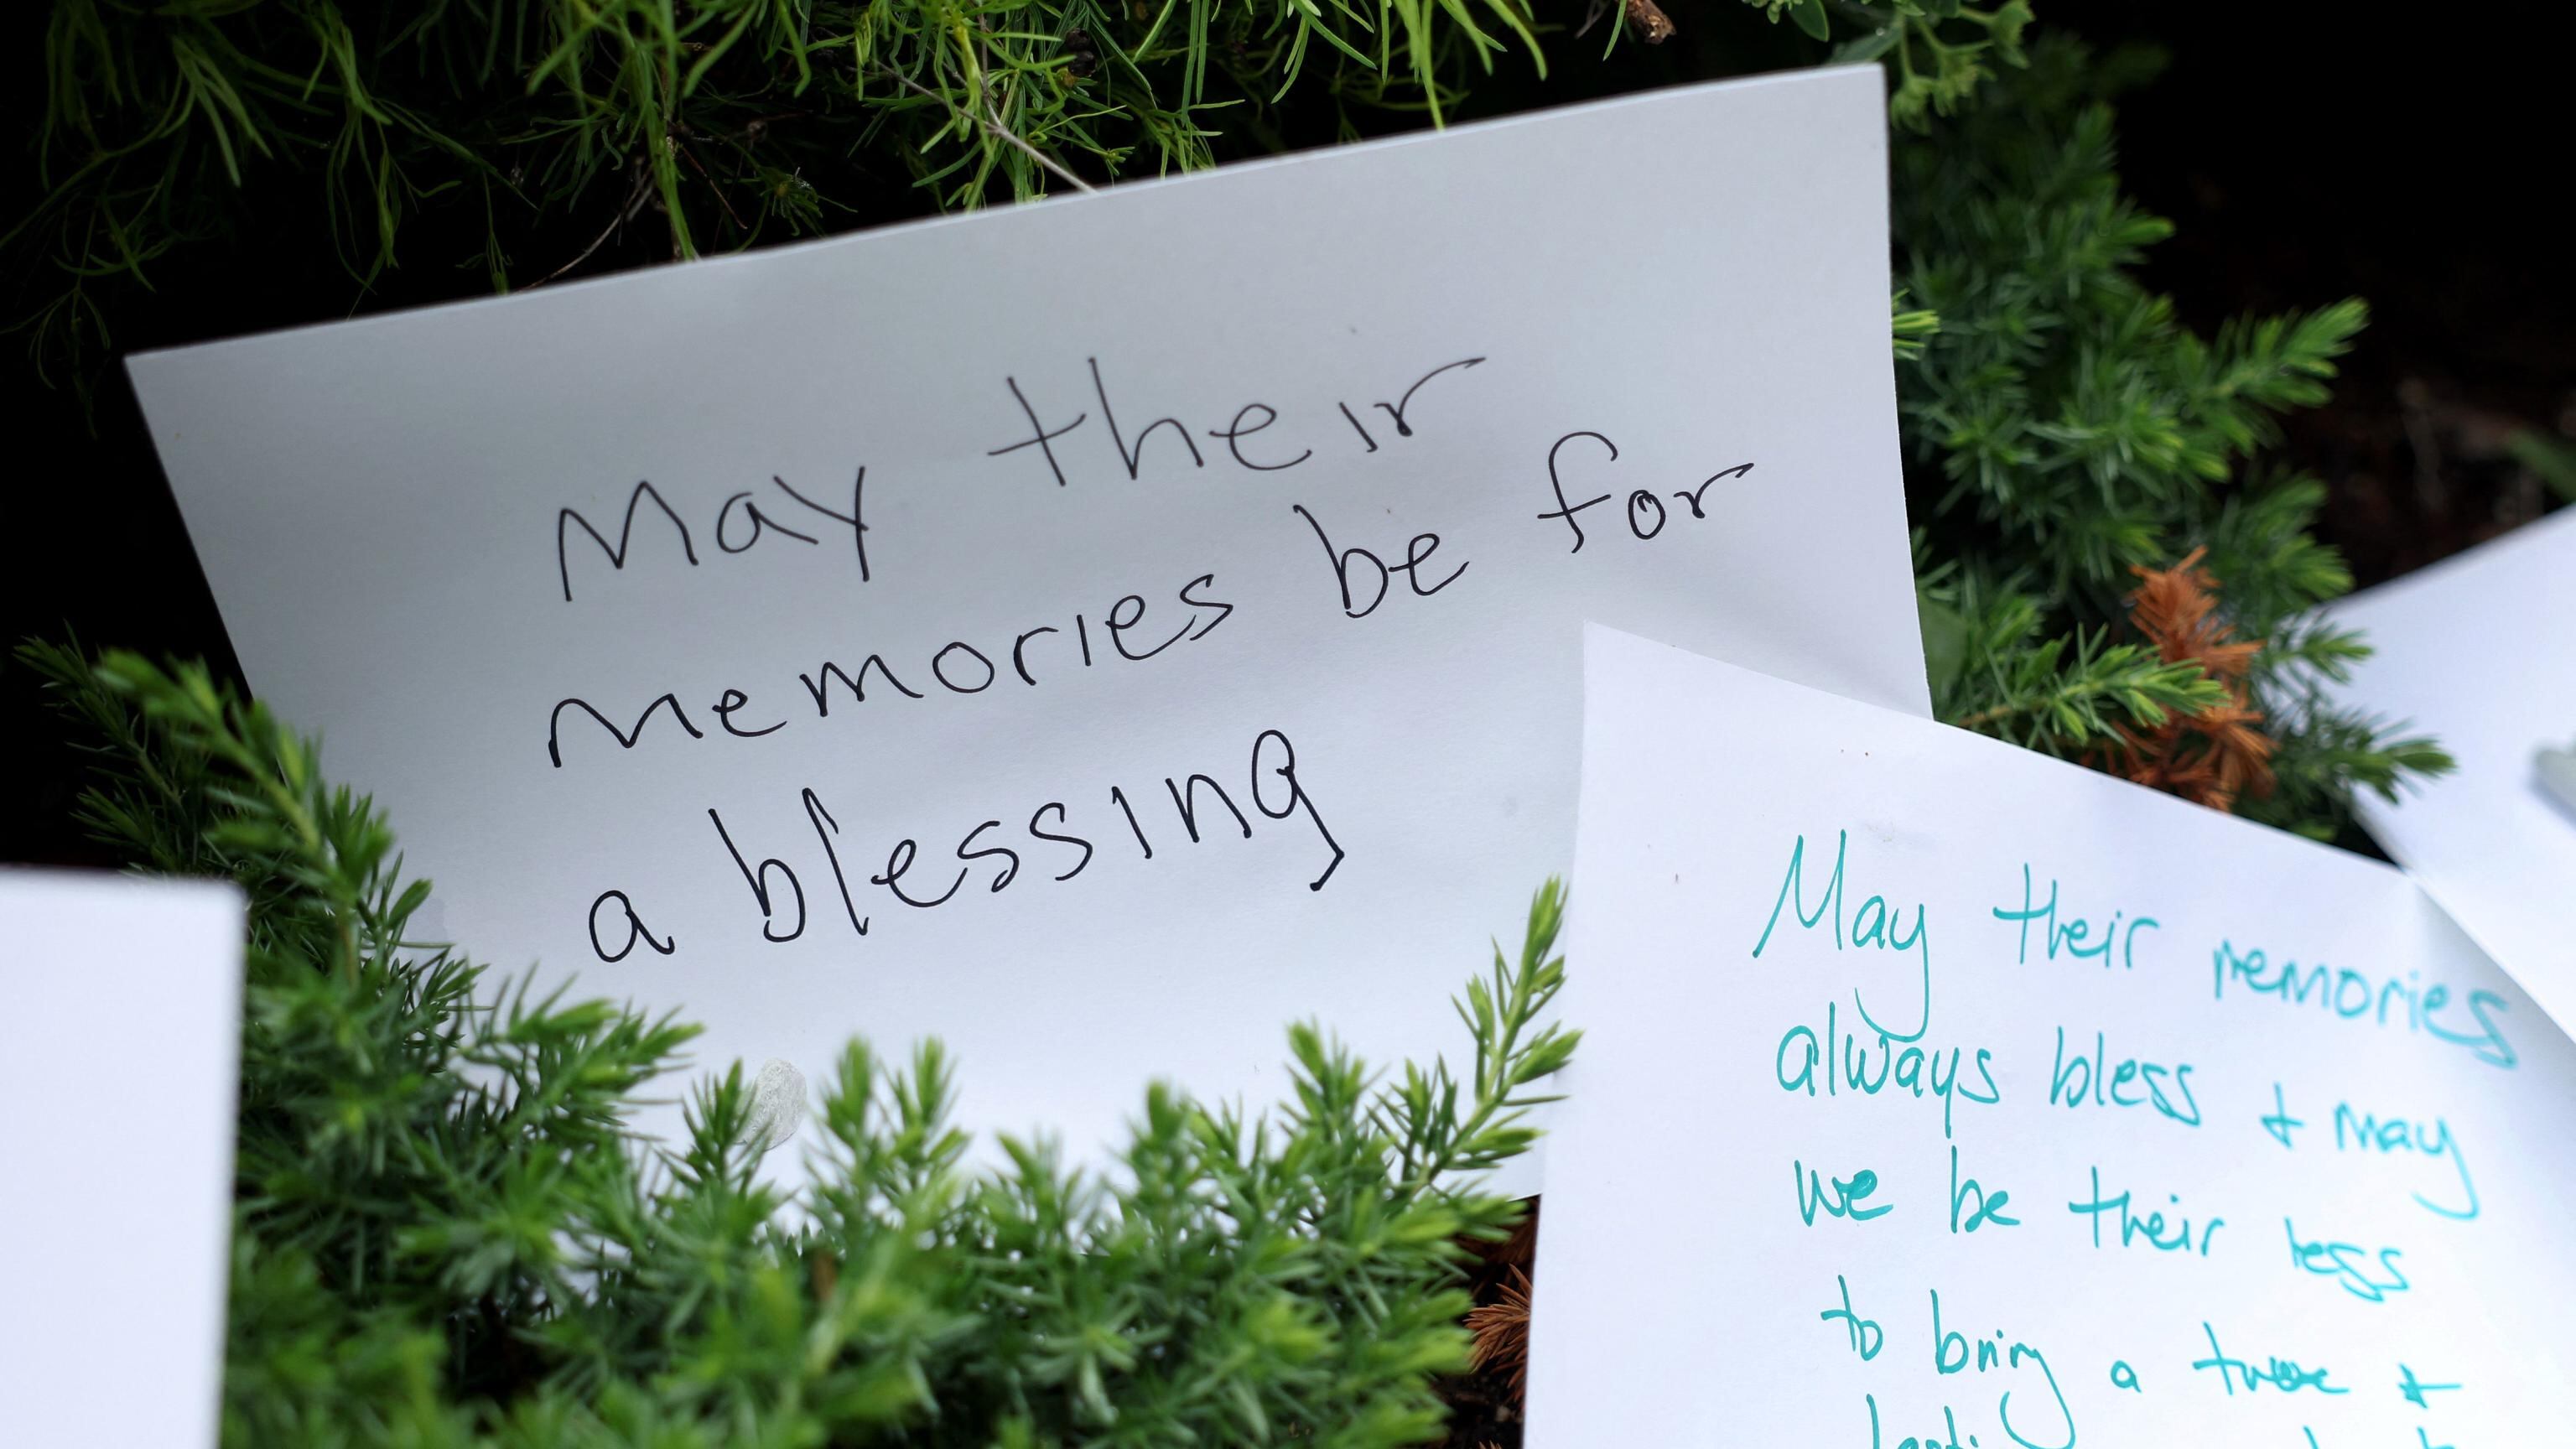 May their
memories be for
a blessing
May their memories
always bless + may
we be their
to bring a